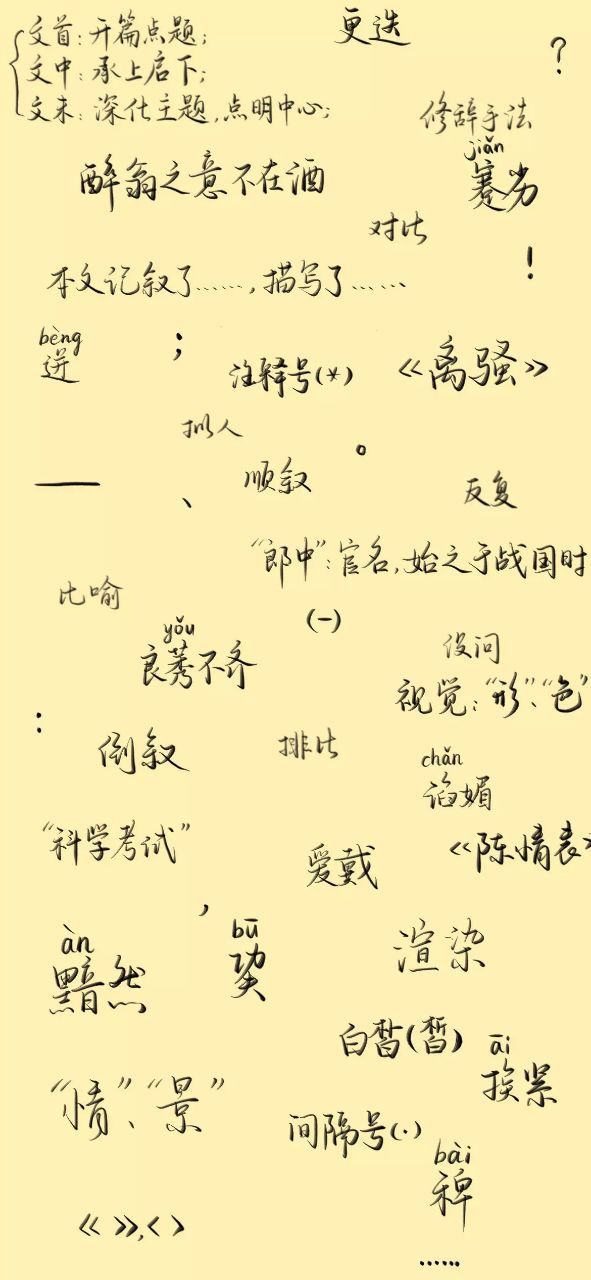 文首:开篇点题;
更迭
文中:承上启下;
?
文末:深化主题,点明中心;
修辞手法
jiǎn
醉翁之意不在酒
蹇劣
对比
!
本文记叙了……,描写了……
bèng
迸
;
注释号(*)
《离骚》
拟人
。
——
、
顺叙
反复
“郎中”:官名,始之于战国时
比喻
(一)
yǒu
良莠不齐
设问
视觉:“形”、“色”
:
倒叙
排比
chǎn
谄媚
“科学考试”
爱戴
《陈情表》
,
àn
黯然
bū
巭
渲染
白皙(晳)
āi
挨紧
“情”、“景”
间隔号(·)
bài
稗
《 》,〈 〉
……